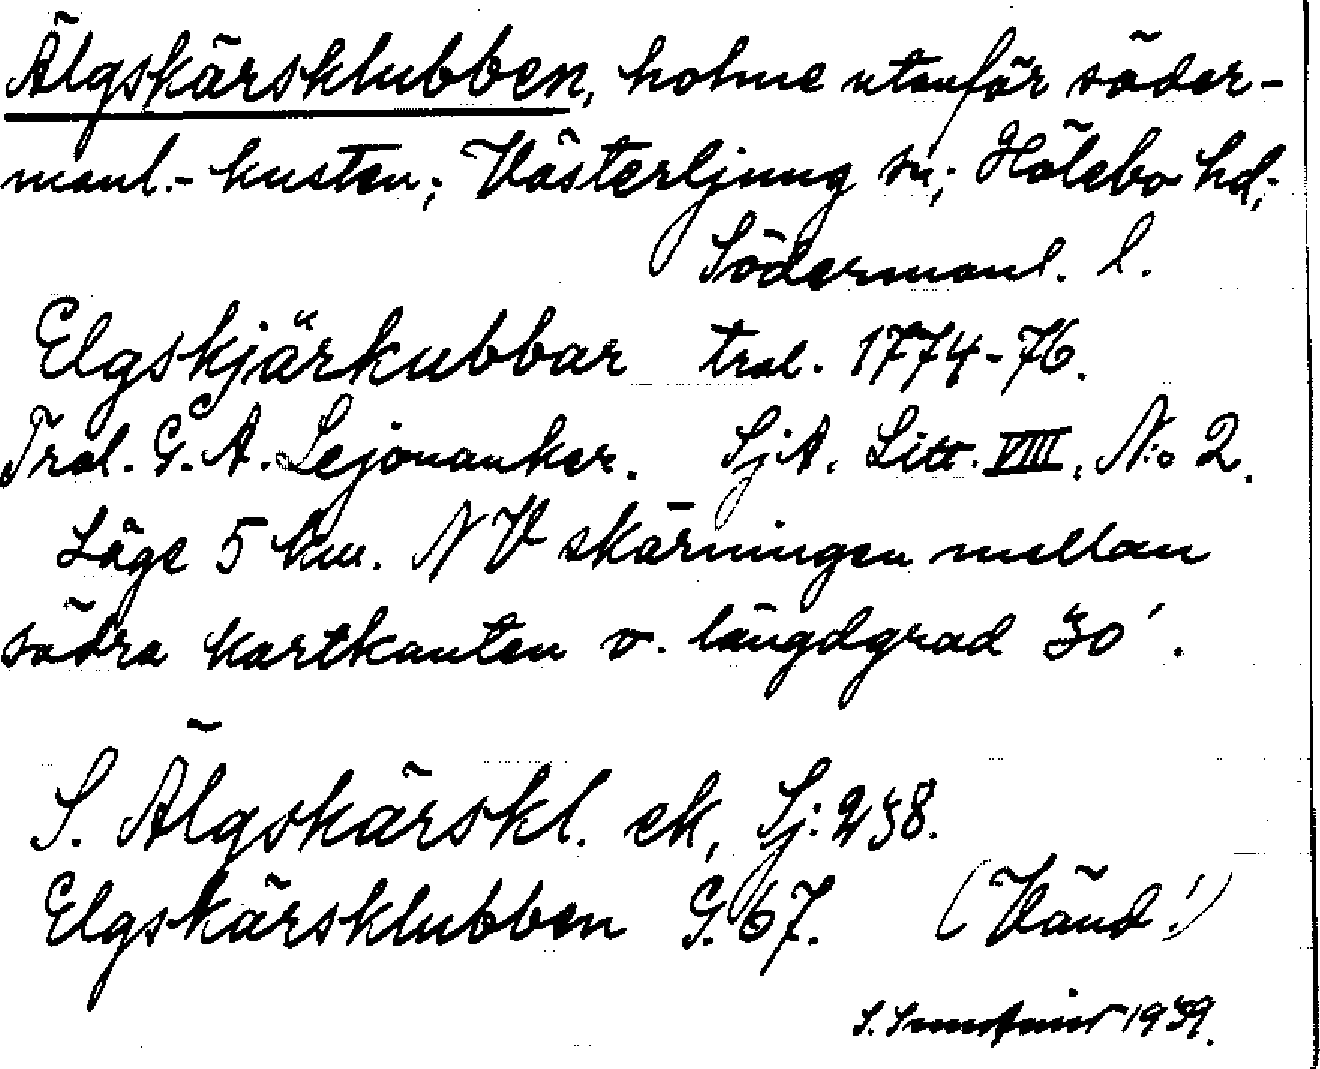 Älgskärsklubben, holme utanför söder-
manl.- kusten; Västerljung sn; Hölebo hd;
Södermanl. l.
Elgskjärkubbar tral. 1774-76.
Tral. G. A. Lejonanker. Sj.A. Litt. VIII, No 2.
Läge 5 km. NV skärningen mellan
södra kartkanten o. längdgrad 30'.
S. Älgskärskl. ek, Sj: 238.
Elgskärsklubben G. 67. (Vänd!)
1939.